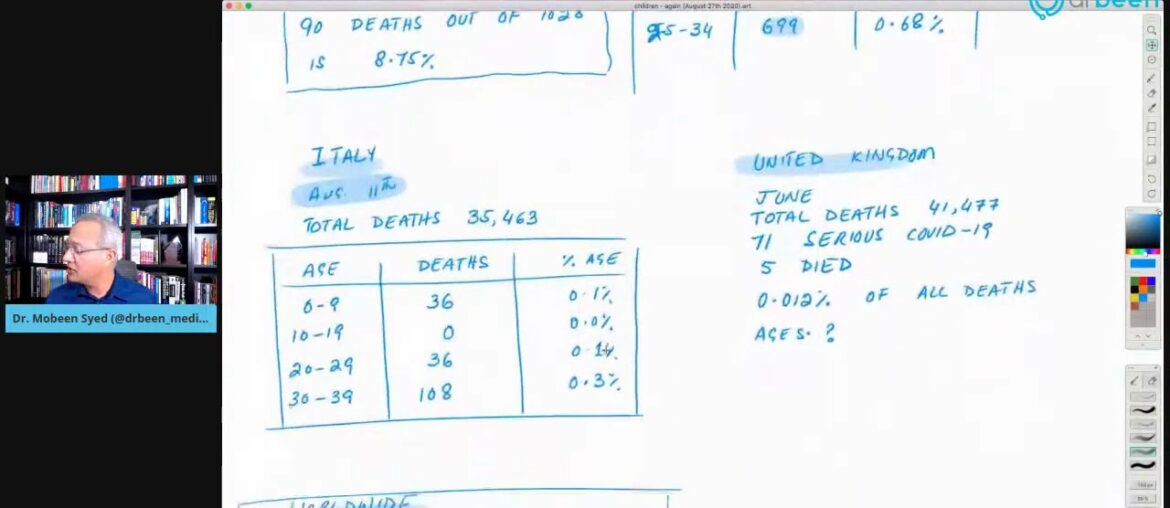 children - again (August 27th 2020).art
drbeen
90 DEATHS OUT OF 1028
IS 8.75%
25-34 699 0.68%
ITALY
AUG. 11TH
TOTAL DEATHS 35,463
AGE DEATHS % AGE
0-9 36 0.1%
10-19 0 0.0%
20-29 36 0.1%
30-39 108 0.3%
UNITED KINGDOM
JUNE
TOTAL DEATHS 41,477
71 SERIOUS COVID-19
5 DIED
0.012% OF ALL DEATHS
AGES. ?
Dr. Mobeen Syed (@drbeen_medi...
WORLDWIDE